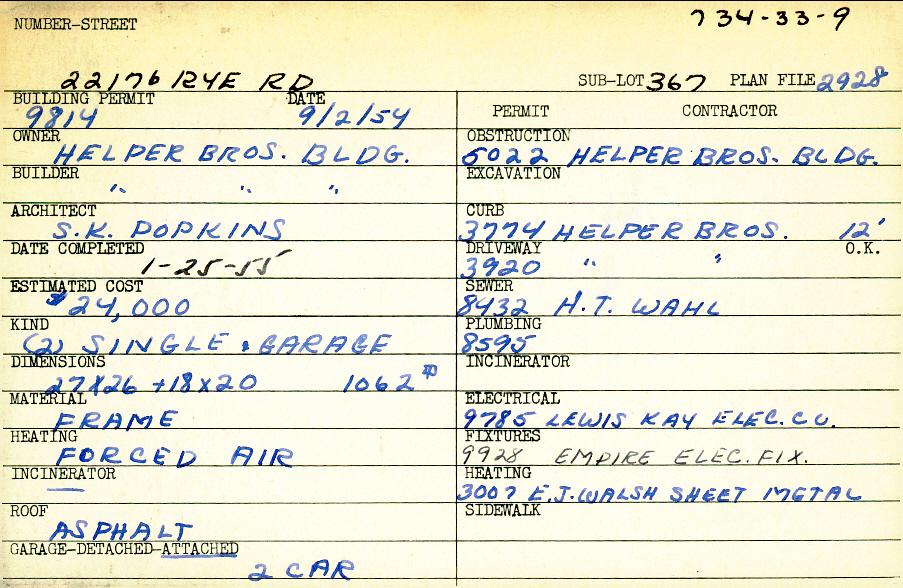 734-33-9
NUMBER-STREET
22176 RYE RD SUB-LOT 367 PLAN FILE 2928
BUILDING PERMIT DATE
9814 9/2/54
OWNER
HELPER BROS. BLDG.
BUILDER
" " "
ARCHITECT
S.K. POPKINS
DATE COMPLETED
1-25-55
ESTIMATED COST
$24,000
KIND
(2) SINGLE & GARAGE
DIMENSIONS
27X26 +18X20 1062
MATERIAL
FRAME
HEATING
FORCED AIR
INCINERATOR
ROOF
ASPHALT
GARAGE-DETACHED-ATTACHED
2 CAR
PERMIT CONTRACTOR
OBSTRUCTION
5022 HELPER BROS. BLDG.
EXCAVATION
CURB
3774 HELPER BROS. 12'
DRIVEWAY O.K.
3920 " "
SEWER
8432 H.T. WAHL
PLUMBING
8595
INCINERATOR
ELECTRICAL
9785 LEWIS KAY ELEC. CO.
FIXTURES
9928 EMPIRE ELEC. FIX.
HEATING
3007 E.J. WALSH SHEET METAL
SIDEWALK